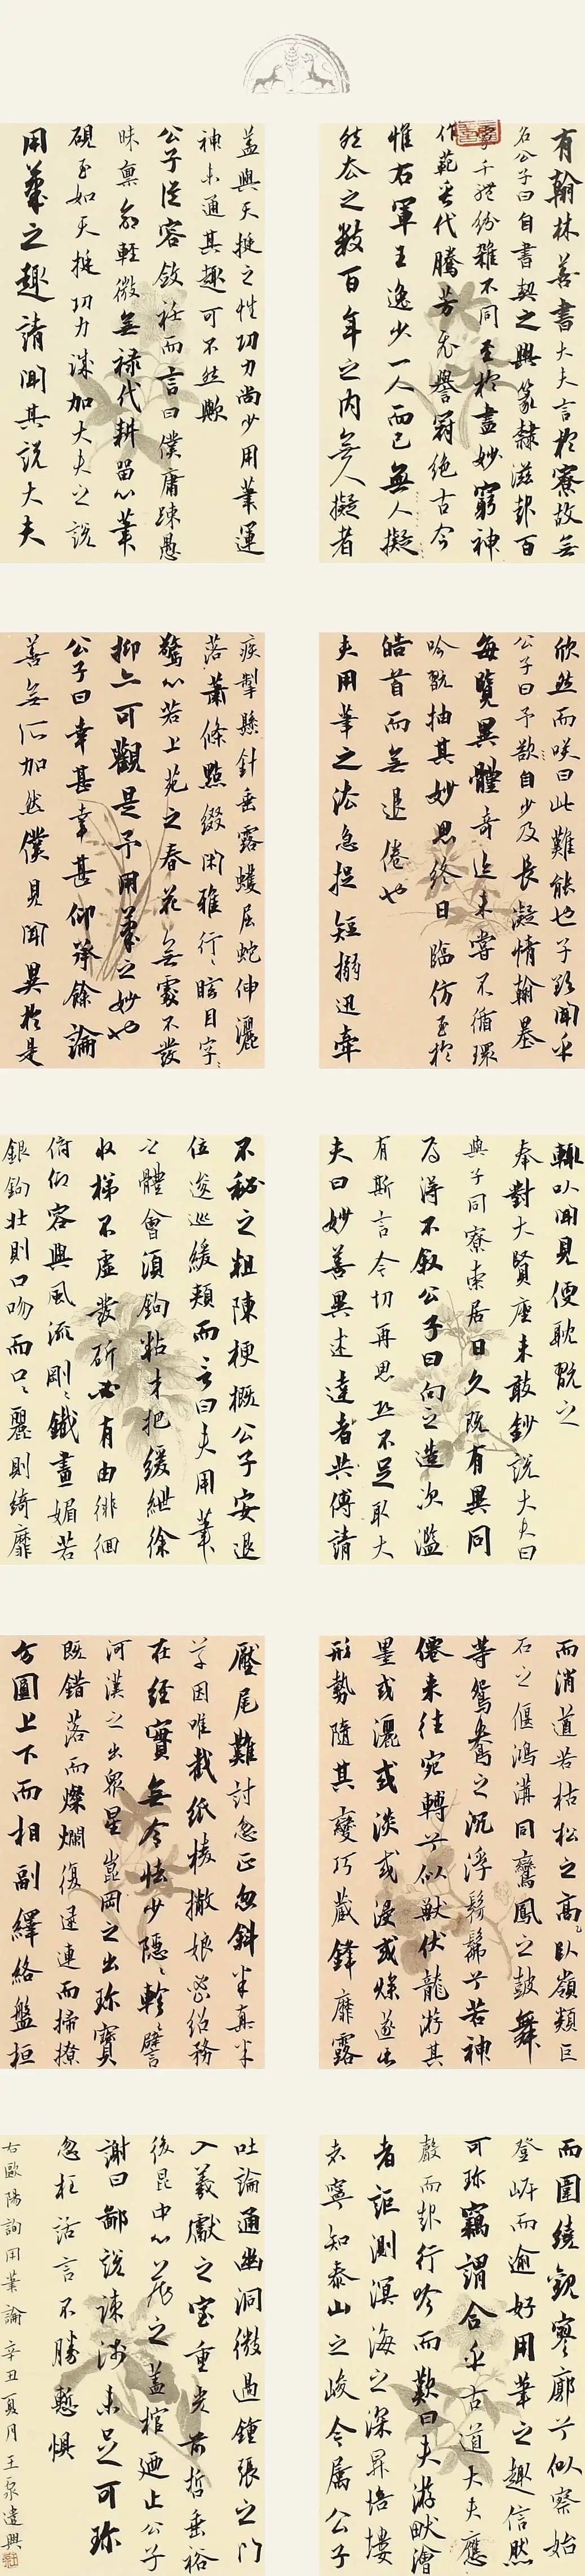 有翰林善書大夫言於寮故無
名公子曰自書契之興篆隸滋起百
家千體紛雜不同至於盡妙窮神
作範垂代騰芳飛譽冠絕古今
惟右軍王逸少一人而已無人擬
然去之數百年之內無人擬者
蓋與天挺之性功力尚少用筆運
神未通其趣可不然歟
公子從容斂衽而言曰僕庸疎愚
昧稟命輕微無祿代耕留心筆
硯至如天挺功力誠加大夫之說
用筆之趣請聞其說大夫
欣然而咲曰此難能也子欲聞乎
公子曰予歎自少及長凝情翰墨
每覽異體奇迹未嘗不循環
吟翫抽其妙思終日臨仿至於
皓首而無退倦也
夫用筆之法急捉短搦迅牽
疾掣懸針垂露蠖屈蛇伸灑
落蕭條點綴閑雅行行眩目字字
驚心若上苑之春花無處不發
抑亦可觀是予用筆之妙也
公子曰幸甚幸甚仰承餘論
善無所加然僕見聞異於是
輒以聞見便耽翫之
奉對大賢座未敢鈔說大夫曰
與子同寮索居日久既有異同
焉得不敘公子曰向之造次濫
有斯言今切再思恐不足取大
夫曰妙善異述達者共傅請
不秘之粗陳梗概公子安退
位逡巡緩頰而言曰夫用筆
之體會須鉤粘才把緩紲徐
收梯不虛發斫必有由徘徊
俯仰容與風流剛剛鐵畫媚若
銀鉤壯則口吻而口口麗則綺靡
而消遒若枯松之高臥嶺類巨
石之偃鴻溝同鸞鳳之鼓舞
等鴛鴦之沉浮髣髴兮若神
僊來往宛轉兮似獸伏龍游其
墨或灑或淡或浸或燥遂其
形勢隨其變巧藏鋒靡露
壓尾難討忽正忽斜半真半
草因唯截紙棱撇娘窈紹務
在經實無令怯少隱隱軫軫譬
河漢之出眾星崑岡之出珍寶
既錯落而燦爛復逯連而掃撩
方圓上下而相副繹絡盤桓
而圍繞觀寥廓兮似察始
登岸而逾好用筆之趣信然
可珍竊謂合乎古道大夫應
聲而起行吟而歎曰夫游畎澮
者詎測溟海之深昇培塿
者寧知泰山之峻今屬公子
吐論通幽洞微過鍾張之門
入羲獻之室重光前哲垂裕
後昆中心藏之蓋棺廼止公子
謝曰鄙說疎淺未足可珍
忽枉話言不勝慙惧
右歐陽詢用筆論辛丑夏月王泉遣興